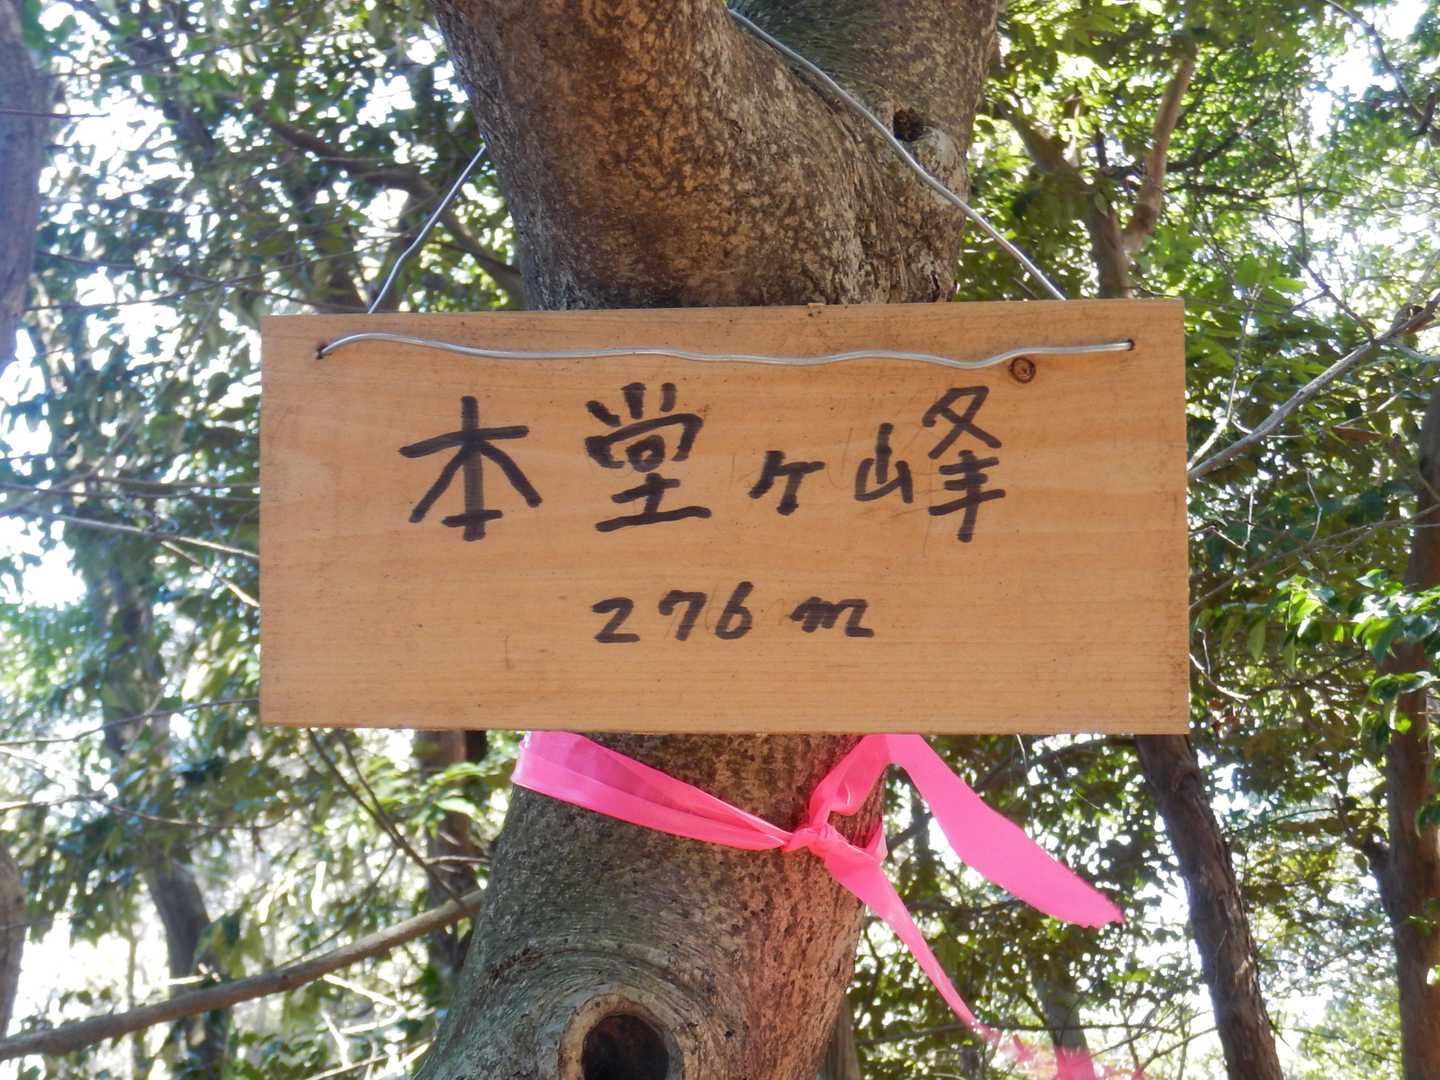 本堂ヶ峰
276m